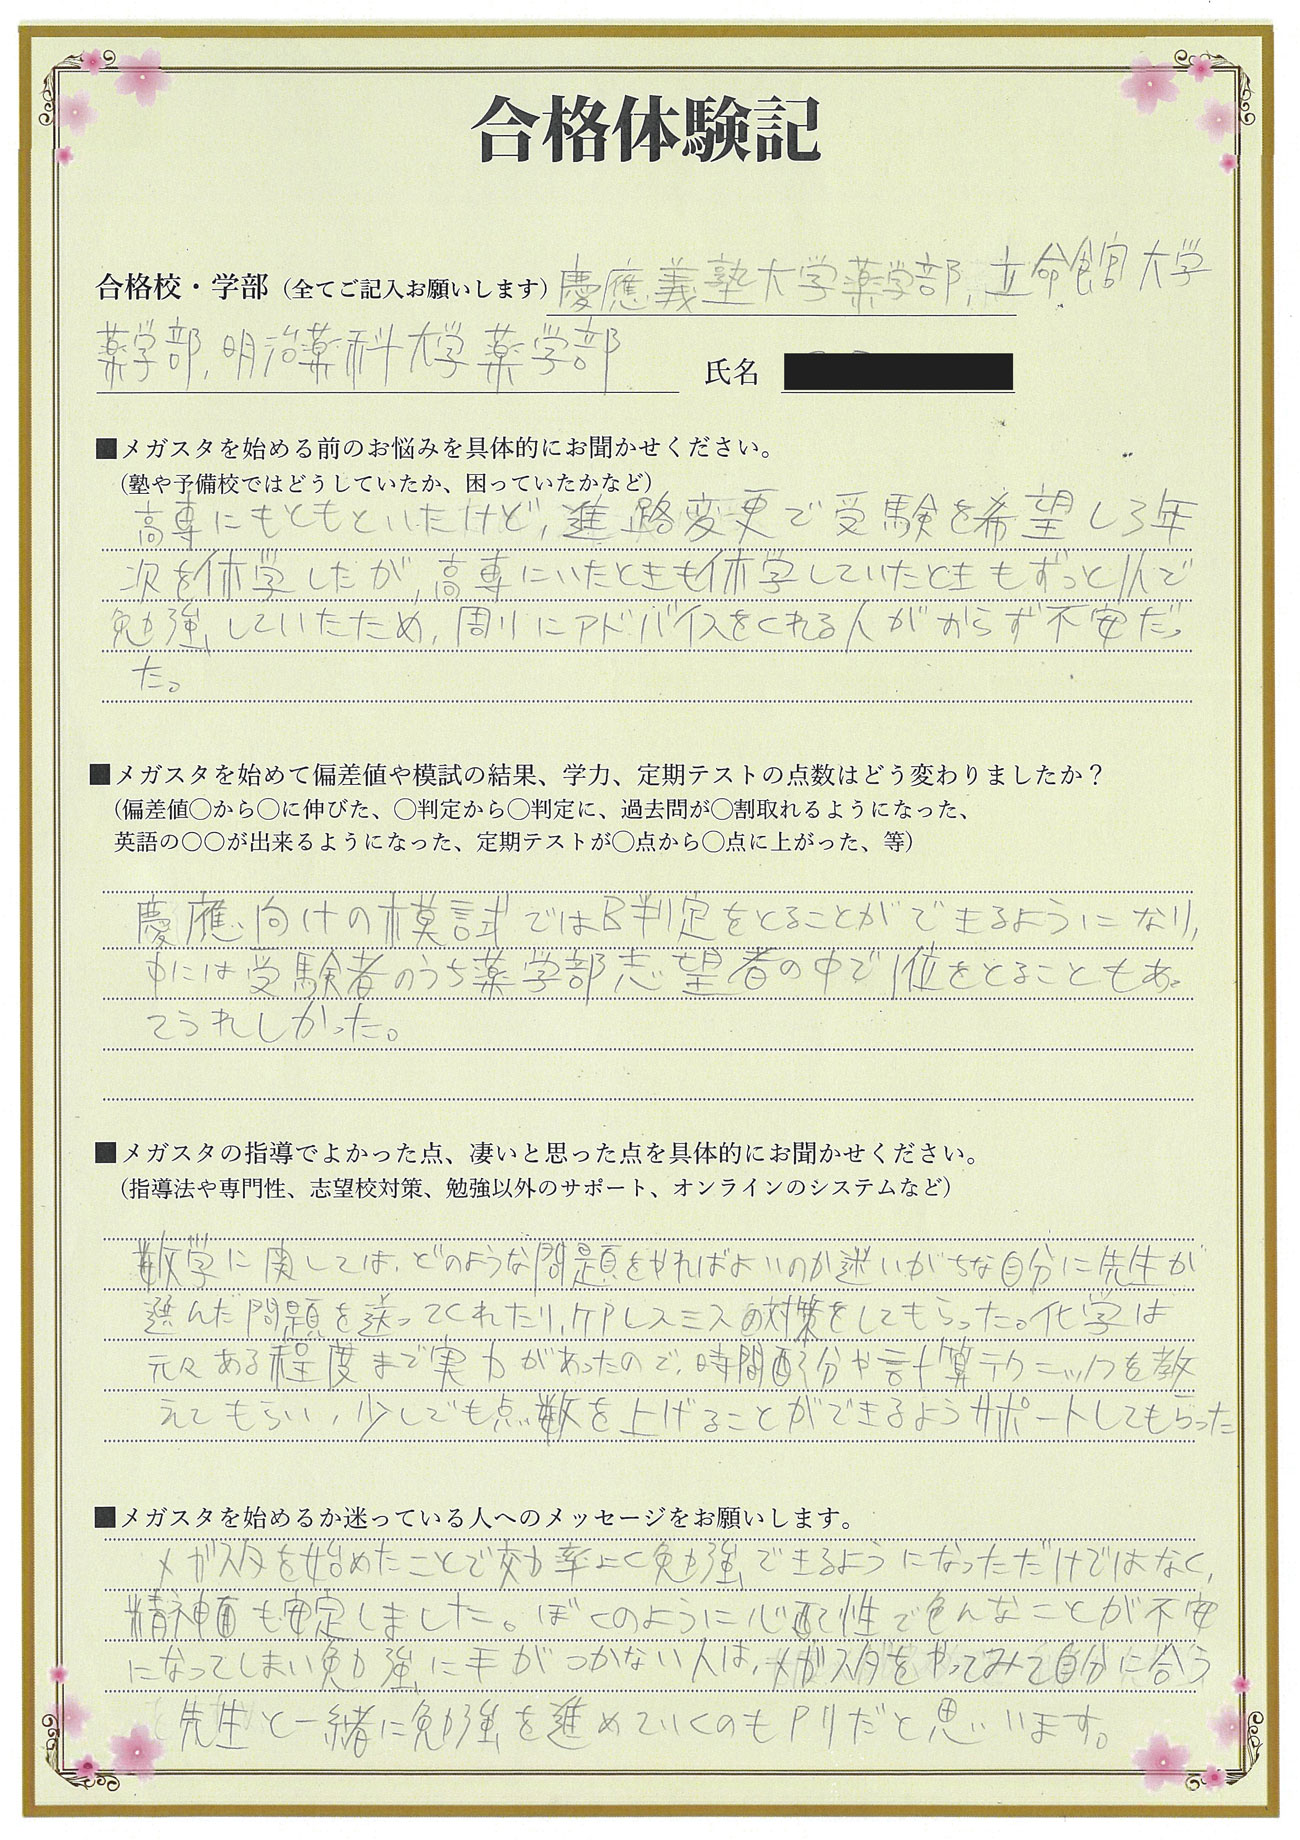 合格体験記
合格校・学部（全てご記入お願いします）慶應義塾大学薬学部, 立命館大学
薬学部, 明治薬科大学薬学部 氏名
■メガスタを始める前のお悩みを具体的にお聞かせください。
（塾や予備校ではどうしていたか、困っていたかなど）
高専にもともといたけど, 進路変更で受験を希望し3年
次を休学したが, 高専にいたときも休学していたときもずっと1人で
勉強していたため, 周りにアドバイスをくれる人がおらず不安だっ
た。
■メガスタを始めて偏差値や模試の結果、学力、定期テストの点数はどう変わりましたか？
（偏差値○から○に伸びた、○判定から○判定に、過去問が○割取れるようになった、
英語の○○が出来るようになった、定期テストが○点から○点に上がった、等）
慶應向けの模試ではB判定をとることができるようになり,
中には受験者のうち薬学部志望者の中で1位をとることもあっ
てうれしかった。
■メガスタの指導でよかった点、凄いと思った点を具体的にお聞かせください。
（指導法や専門性、志望校対策、勉強以外のサポート、オンラインのシステムなど）
数学に関しては, どのような問題をやればよいのか迷いがちな自分に先生が
選んだ問題を送ってくれたり, ケアレスミスの対策をしてもらった。化学は
元々ある程度まで実力があったので, 時間配分や計算テクニックを教
えてもらい, 少しでも点数を上げることができるようサポートしてもらった
■メガスタを始めるか迷っている人へのメッセージをお願いします。
メガスタを始めたことで効率よく勉強できるようになっただけではなく,
精神面も安定しました。ぼくのように心配性で色んなことが不安
になってしまい勉強に手がつかない人は, メガスタをやってみて自分に合う
先生と一緒に勉強を進めていくのもアリだと思います。